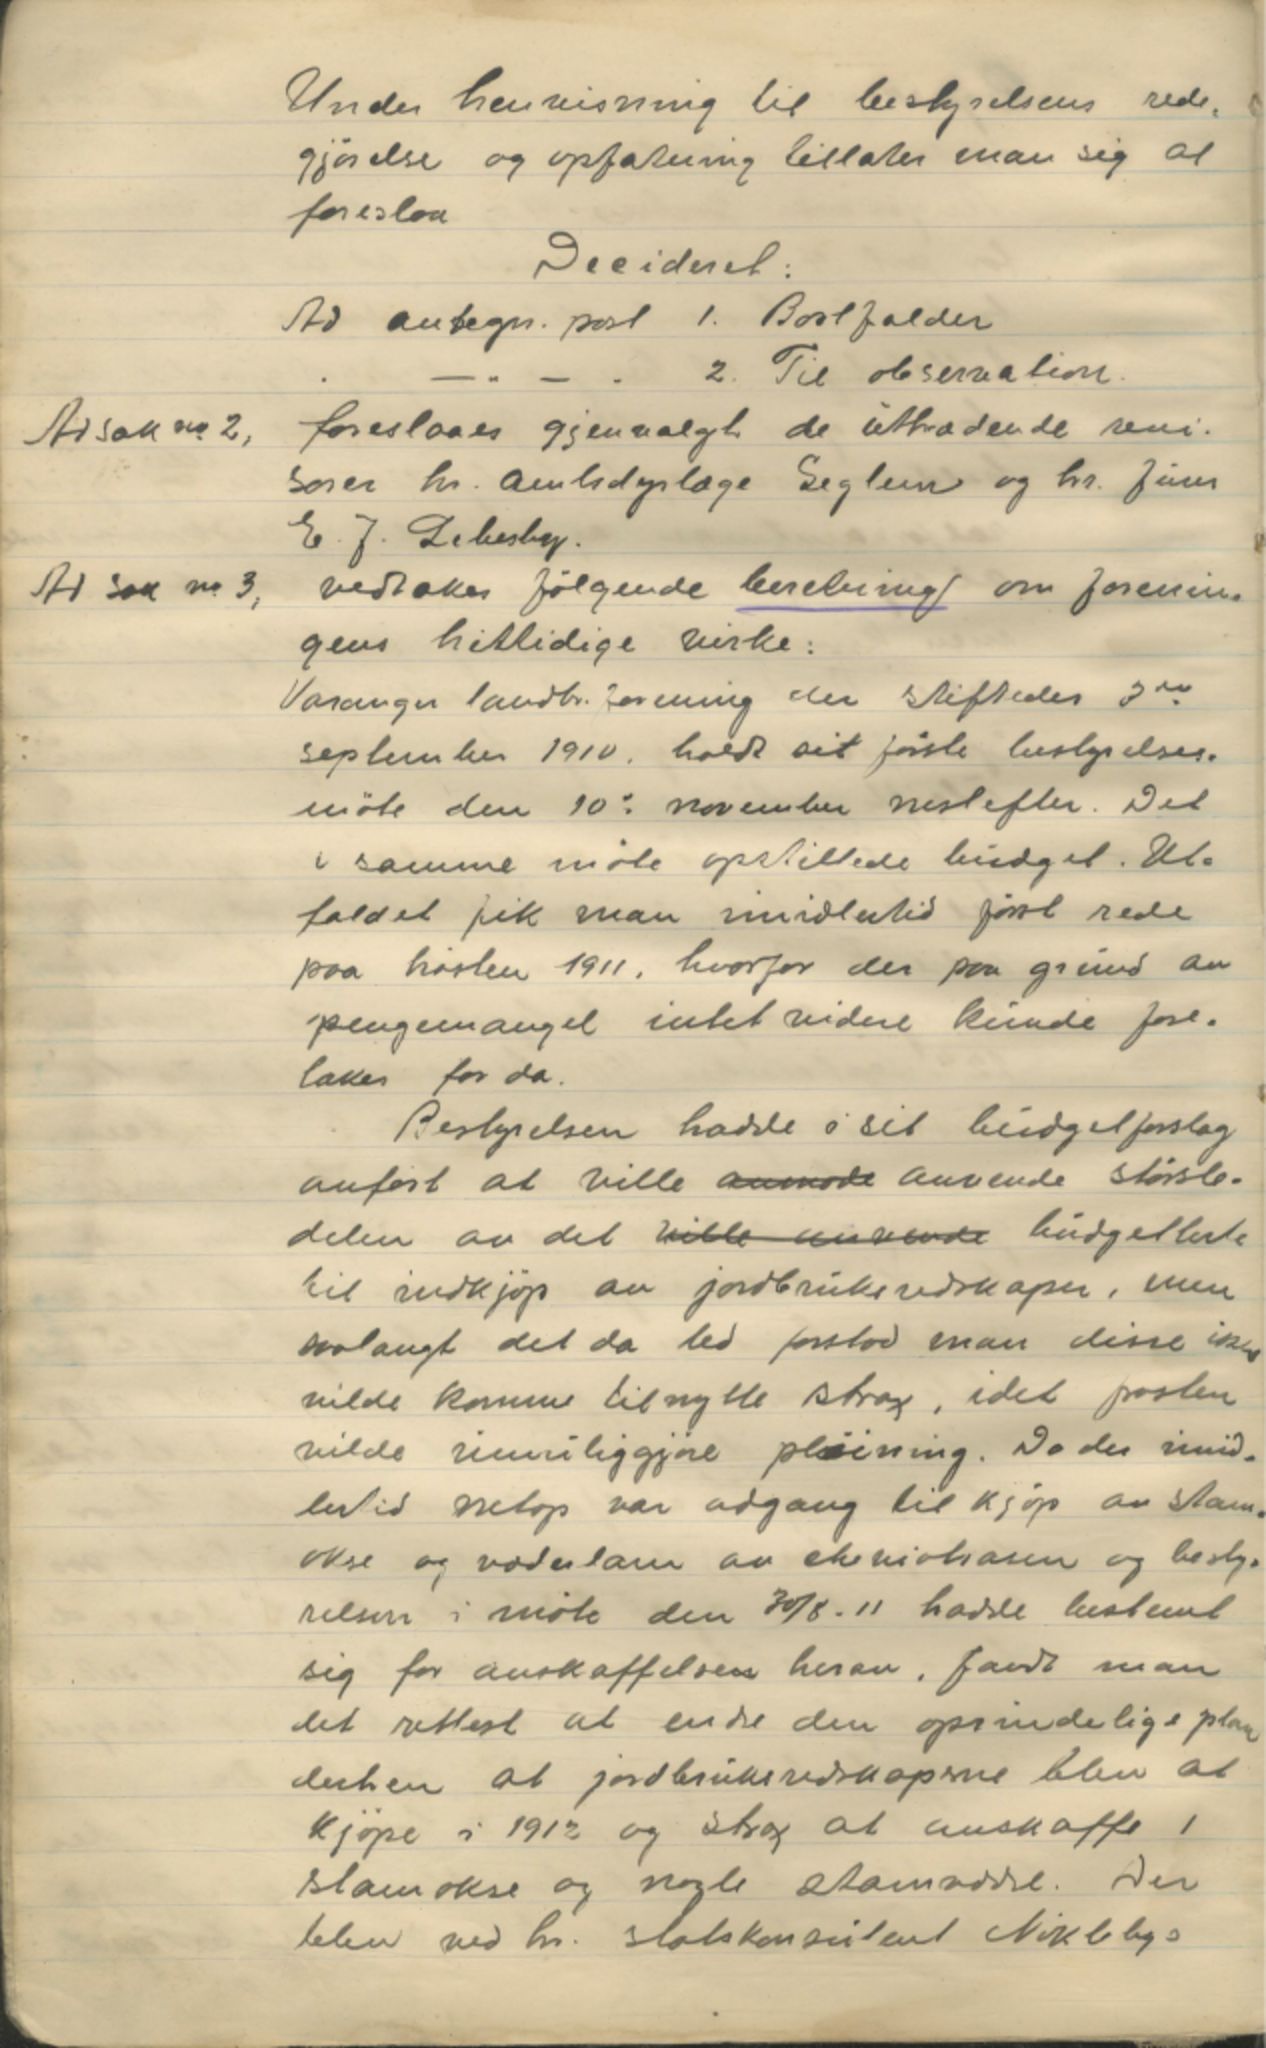 Under henvisning til bestyrelsens rede-
gjørelse og opfatning tillater man sig at
foreslaa
Decideret:
Ad antegn. post 1. Bortfalder
" — " — " 2. Til observation.
Ad sak no 2, foreslaaes gjenvalgt de uttrædende revi-
sorer hr. amtsdyrlæge Seglem og hr. furer
E. J. Lebesby.
Ad sak no 3, vedtakes følgende beretning om forenin-
gens hittidige virke:
Varanger landbr. forening der stiftedes 3die
september 1910, holdt sit første bestyrelses-
møte den 10: november nestefter. Det
i samme møte opstillede budget. Ut-
faldet fik man imidlertid først rede
paa høsten 1911, hvorfor der paa grund av
pengemangel intet videre kunde fore-
takes før da.
Bestyrelsen hadde i sit budgetforslag
anført at ville anmode anvende største-
delen av det ville anvende budgetterte
til indkjøp av jordbruksredskaper, men
saalangt det da led forstod man disse ikke
vilde komme til nytte strax, idet frosten
vilde umuliggjøre pløining. Da der imid-
lertid netop var adgang til kjøp av stam-
okse og væderlam av cheviotrasen og besty-
relsen i møte den 30/8-11 hadde bestemt
sig for anskaffelsen herav, fandt man
det rettest at endre den oprindelige plan
derhen at jordbruksredskaperne blev at
kjøpe i 1912 og strax at anskaffe 1
stamokse og nogle stamvædre. Der
blev ved hr. statskonsulent Niklebys